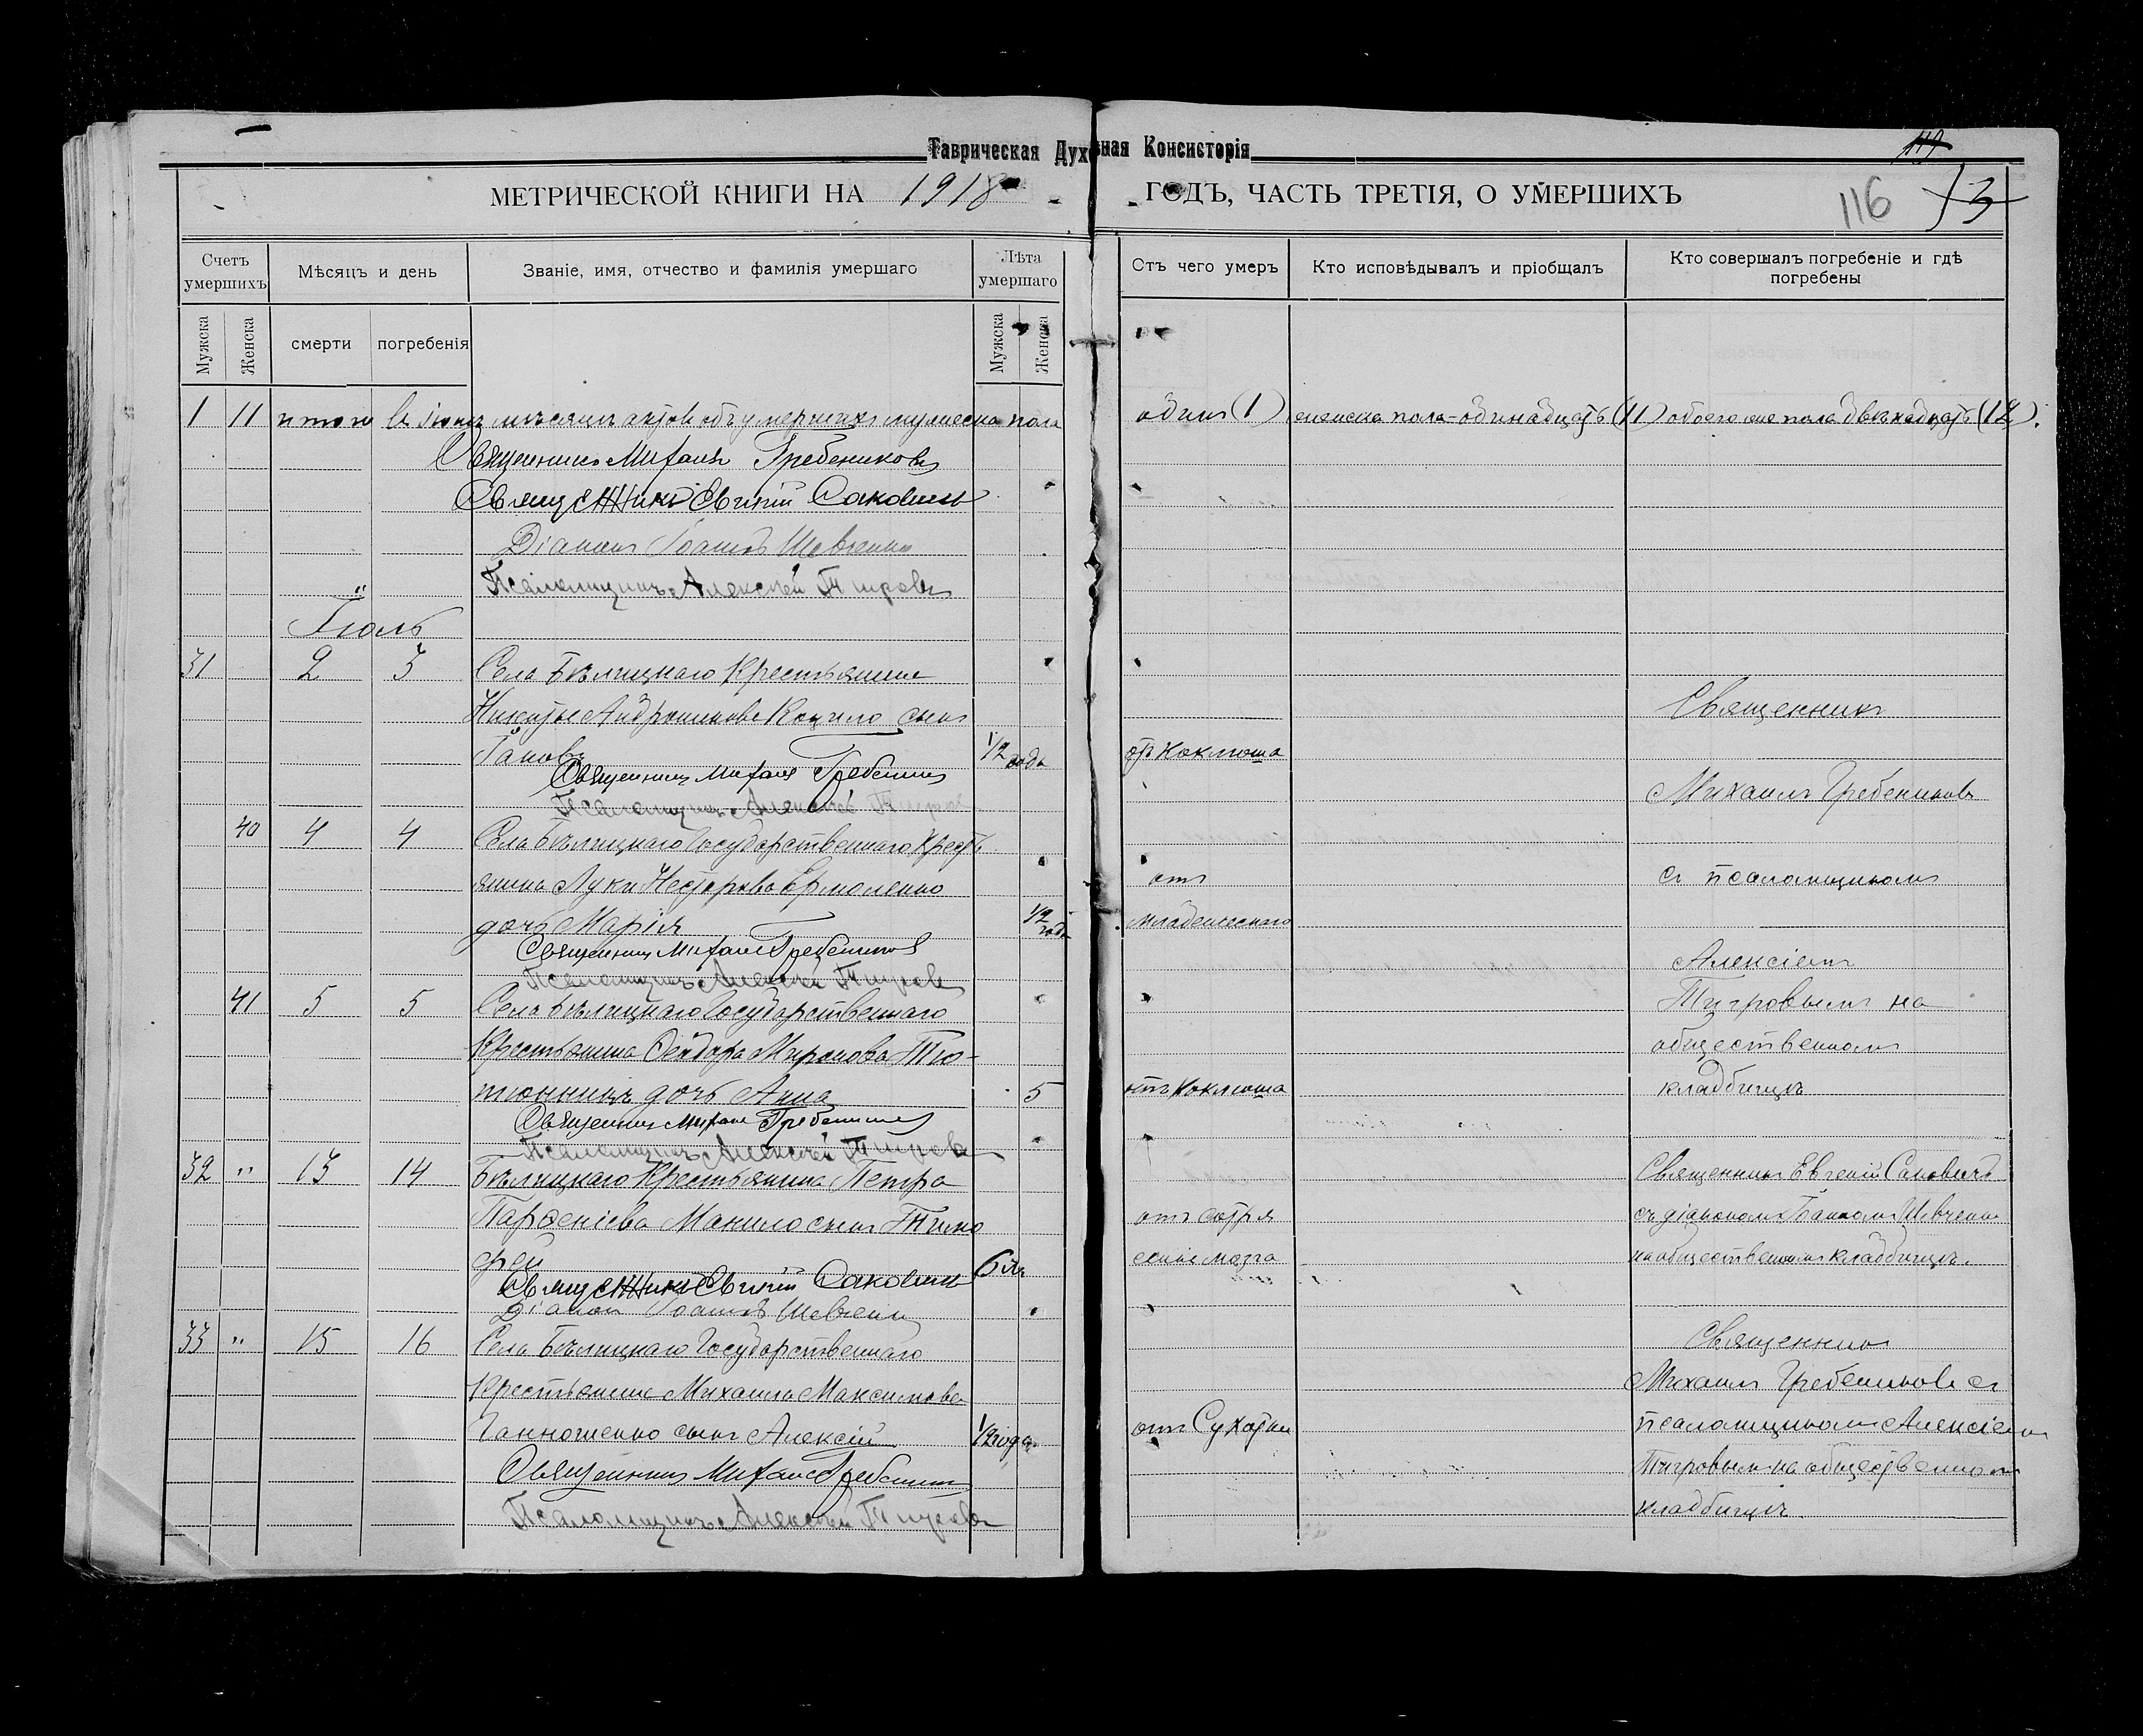 Таврическая Духовная Консисторія
119
МЕТРИЧЕСКОЙ КНИГИ НА 1918 ГОДЪ, ЧАСТЬ ТРЕТІЯ, О УМЕРШИХЪ
116
73
Счетъ умершихъ
Мѣсяцъ и день
Званіе, имя, отчество и фамилія умершаго
Лѣта умершаго
Отъ чего умеръ
Кто исповѣдывалъ и пріобщалъ
Кто совершалъ погребеніе и гдѣ погребены
Мужска
Женска
смерти
погребенія
Мужска
Женска
1 11 итого въ Іюнѣ мѣсяцѣ актов объ умершихъ мужеска пола один (1) женска пола - одинадцать (11) обоего же пола двѣнадцать (12).
Священникъ Михаилъ Гребениковъ
Священникъ Евгеній Саковичъ
Діаконъ Іоаннъ Шевченко
Псаломщикъ Алексѣй Тигровъ
Іюль
31 2 3 Села Бѣлицкаго Крестьянина
Никиты Андроникова сынъ
Іаковъ 1/2 года отъ Коклюша
Священникъ Михаилъ Гребениковъ
Псаломщикъ Алексѣй Тигровъ
Священникъ
Михаилъ Гребениковъ
съ псаломщикомъ
Алексіемъ
Тигровымъ на
общественномъ
кладбищѣ
40 4 4 Села Бѣлицкаго Государственнаго Кресть
янина Луки Нестерова Ермоленко
дочь Марія 1/2 года отъ
младенческаго
Священникъ Михаилъ Гребениковъ
Псаломщикъ Алексѣй Тигровъ
41 5 5 Села Бѣлицкаго Государственнаго
Крестьянина Сидора Миронова Тю-
тюнникъ дочь Анна 5 отъ Коклюша
Священникъ Михаилъ Гребениковъ
Псаломщикъ Алексѣй Тигровъ
32 " 13 14 Бѣлицкаго Крестьянина Петра
Парѳеніева Манило сынъ Тимо
фей 6 л. отъ сотря
сенія мозга
Священникъ Евгеній Саковичъ
Діаконъ Іоаннъ Шевченко
Священникъ Евгеній Саковичъ
съ діакономъ Іоанномъ Шевченко
на общественномъ кладбищѣ.
33 " 15 16 Села Бѣлицкаго Государственнаго
Крестьянина Михаила Максимова
сынъ Алексій 1/2 года отъ Сухотки
Священникъ Михаилъ Гребениковъ
Псаломщикъ Алексѣй Тигровъ
Священникъ
Михаилъ Гребениковъ съ
псаломщикомъ Алексіемъ
Тигровымъ на общественномъ
кладбищѣ.